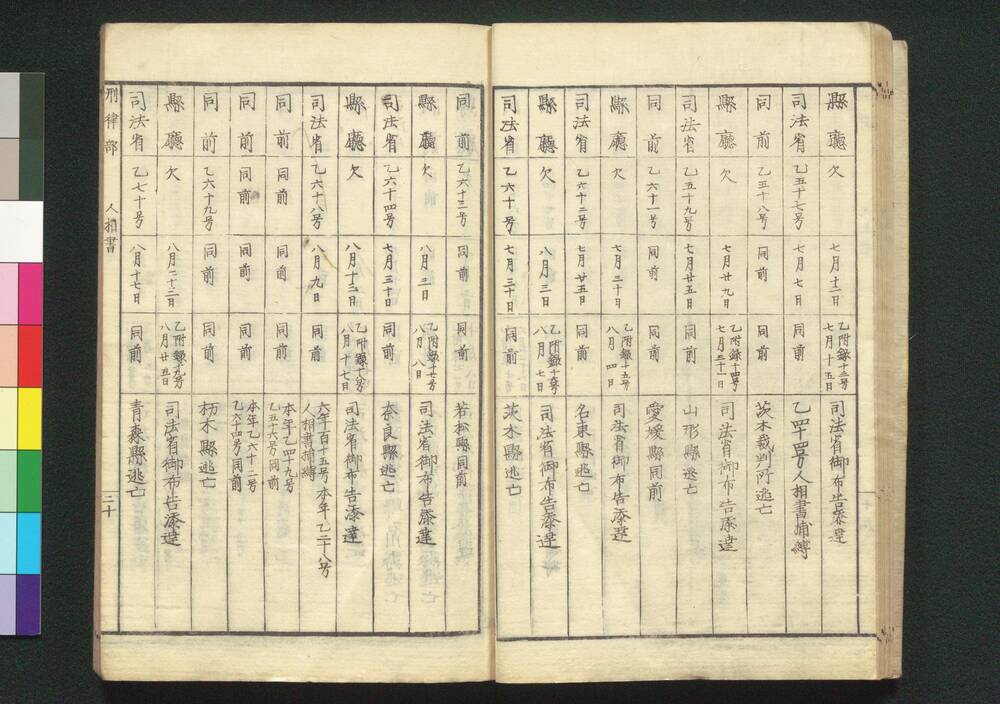 縣廳 欠 七月十二日 乙附録十三号 七月十五日 司法省御布告添達
司法省 乙五十七号 七月七日 同前 乙四十四号人相書捕縛
同前 乙五十八号 同前 同前 茨木裁判所逃亡
縣廳 欠 七月廿九日 乙附録十四号 七月三十一日 司法省御布告添達
司法省 乙五十九号 七月廿五日 同前 山形縣逃亡
同前 乙六十一号 同前 同前 愛媛縣同前
縣廳 欠 七月三十日 乙附録十五号 八月四日 司法省御布告添達
司法省 乙六十二号 七月廿五日 同前 名東縣逃亡
縣廳 欠 八月三日 乙附録十六号 八月七日 司法省御布告添達
司法省 乙六十号 七月三十日 同前 茨木縣逃亡
同前 乙六十三号 同前 同前 若松縣同前
縣廳 欠 八月三日 乙附録十七号 八月八日 司法省御布告添達
司法省 乙六十四号 七月三十日 同前 奈良縣逃亡
縣廳 欠 八月十三日 乙附録十八号 八月十七日 司法省御布告添達
司法省 乙六十八号 八月九日 同前 六年百十五号本年乙二十八号人相書捕縛
同前 同前 同前 同前 本年乙四十九号乙五十六号同前
同前 同前 同前 同前 本年乙六十二号乙六十四号同前
同前 乙六十九号 同前 同前 栃木縣逃亡
縣廳 欠 八月二十三日 乙附録十九号 八月廿五日 司法省御布告添達
司法省 乙七十号 八月十七日 同前 青森縣逃亡
刑律部 人相書 二十